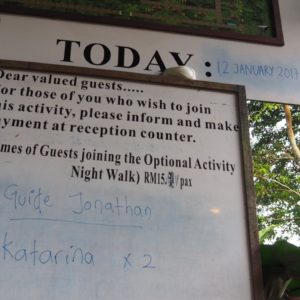 TODAY : 12 JANUARY 2017
Dear valued guests.....
for those of you who wish to join
his activity, please inform and make
ayment at reception counter.
ames of Guests joining the Optional Activity
Night Walk) RM15. / pax
Guide Jonathan
Katarina x 2